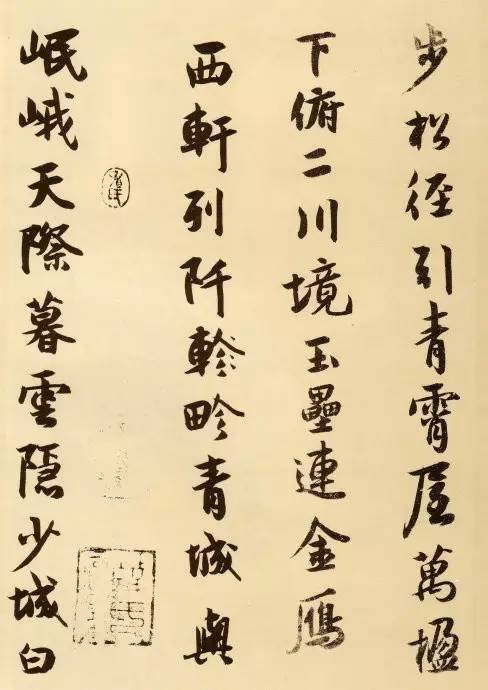 步松徑引青霄屋萬楹
下俯二川境玉壘連金鴈
西軒列阡軫畛青城與
岷峨天際暮雲隱少城白